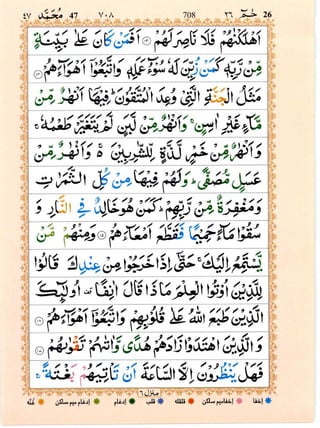 ٤٧ مُحَمَّد 47 ٧٠٨ 708 ٢٦ حٰمٓ 26
اَهۡلَكۡنٰهُمۡ فَلَا نَاصِرَ لَهُمۡ ‏﴿۱۳﴾‏ اَفَمَنۡ كَانَ عَلٰى بَيِّنَةٍ
مِّنۡ رَّبِّهٖ كَمَنۡ زُيِّنَ لَهٗ سُوۡٓءُ عَمَلِهٖ وَاتَّبَعُوۡۤا اَهۡوَآءَهُمۡ‏ ﴿۱۴﴾‏
مَثَلُ الۡجَنَّةِ الَّتِىۡ وُعِدَ الۡمُتَّقُوۡنَ‌ؕ فِيۡهَاۤ اَنۡهٰرٌ مِّنۡ
مَّآءٍ غَيۡرِ اٰسِنٍ‌ ۚ وَاَنۡهٰرٌ مِّنۡ لَّبَنٍ لَّمۡ يَتَغَيَّرۡ طَعۡمُهٗ ‌ۚ
وَاَنۡهٰرٌ مِّنۡ خَمۡرٍ لَّذَّةٍ لِّلشّٰرِبِيۡنَ ۚ وَاَنۡهٰرٌ مِّنۡ
عَسَلٍ مُّصَفًّى‌ ؕ وَلَهُمۡ فِيۡهَا مِنۡ كُلِّ الثَّمَرٰتِ
وَمَغۡفِرَةٌ مِّنۡ رَّبِّهِمۡ‌ؕ كَمَنۡ هُوَ خَالِدٌ فِى النَّارِ وَ
سُقُوۡا مَآءً حَمِيۡمًا فَقَطَّعَ اَمۡعَآءَهُمۡ‏ ﴿۱۵﴾‏ وَمِنۡهُمۡ مَّنۡ
يَّسۡتَمِعُ اِلَيۡكَ‌ۚ حَتّٰٓى اِذَا خَرَجُوۡا مِنۡ عِنۡدِكَ قَالُوۡا
لِلَّذِيۡنَ اُوۡتُوا الۡعِلۡمَ مَاذَا قَالَ اٰنِفًا‌ اُولٰٓٮِٕكَ
الَّذِيۡنَ طَبَعَ اللّٰهُ عَلٰى قُلُوۡبِهِمۡ وَاتَّبَعُوۡۤا اَهۡوَآءَهُمۡ‏ ﴿۱۶﴾‏
وَالَّذِيۡنَ اهۡتَدَوۡا زَادَهُمۡ هُدًى وَّاٰتٰٮهُمۡ تَقۡوٰٮهُمۡ‏ ﴿۱۷﴾‏
فَهَلۡ يَنۡظُرُوۡنَ اِلَّا السَّاعَةَ اَنۡ تَاۡتِيَهُمۡ بَغۡتَةً‌ ۚ
منزل ٦
اخفا اخفا میم ساکن قلقلہ قلب ادغام ادغام میم ساکن غنّہ